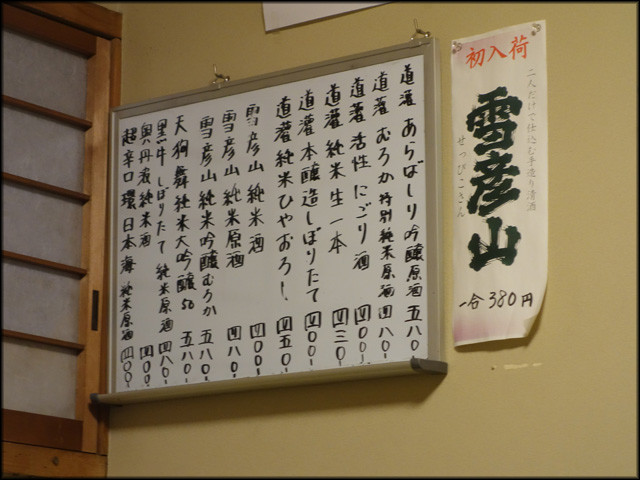 道灌 あらばしり吟醸原酒 五八〇-
道灌 むろか特別純米原酒 四八〇-
道灌 活性にごり酒 四〇〇-
道灌 純米生一本 四三〇-
道灌 本醸造しぼりたて 四〇〇-
道灌 純米ひやおろし 四五〇-
雪彦山 純米酒 四〇〇-
雪彦山 純米原酒 四八〇-
雪彦山純米吟醸むろか 五八〇-
天狗舞純米大吟醸50 五八〇-
黒牛しぼりたて純米原酒 四八〇-
奥丹波純米酒 四〇〇-
超辛口環日本海純米原酒 四〇〇-
初入荷
二人だけで仕込む手造り清酒
雪彦山
せっぴこさん
一合380円